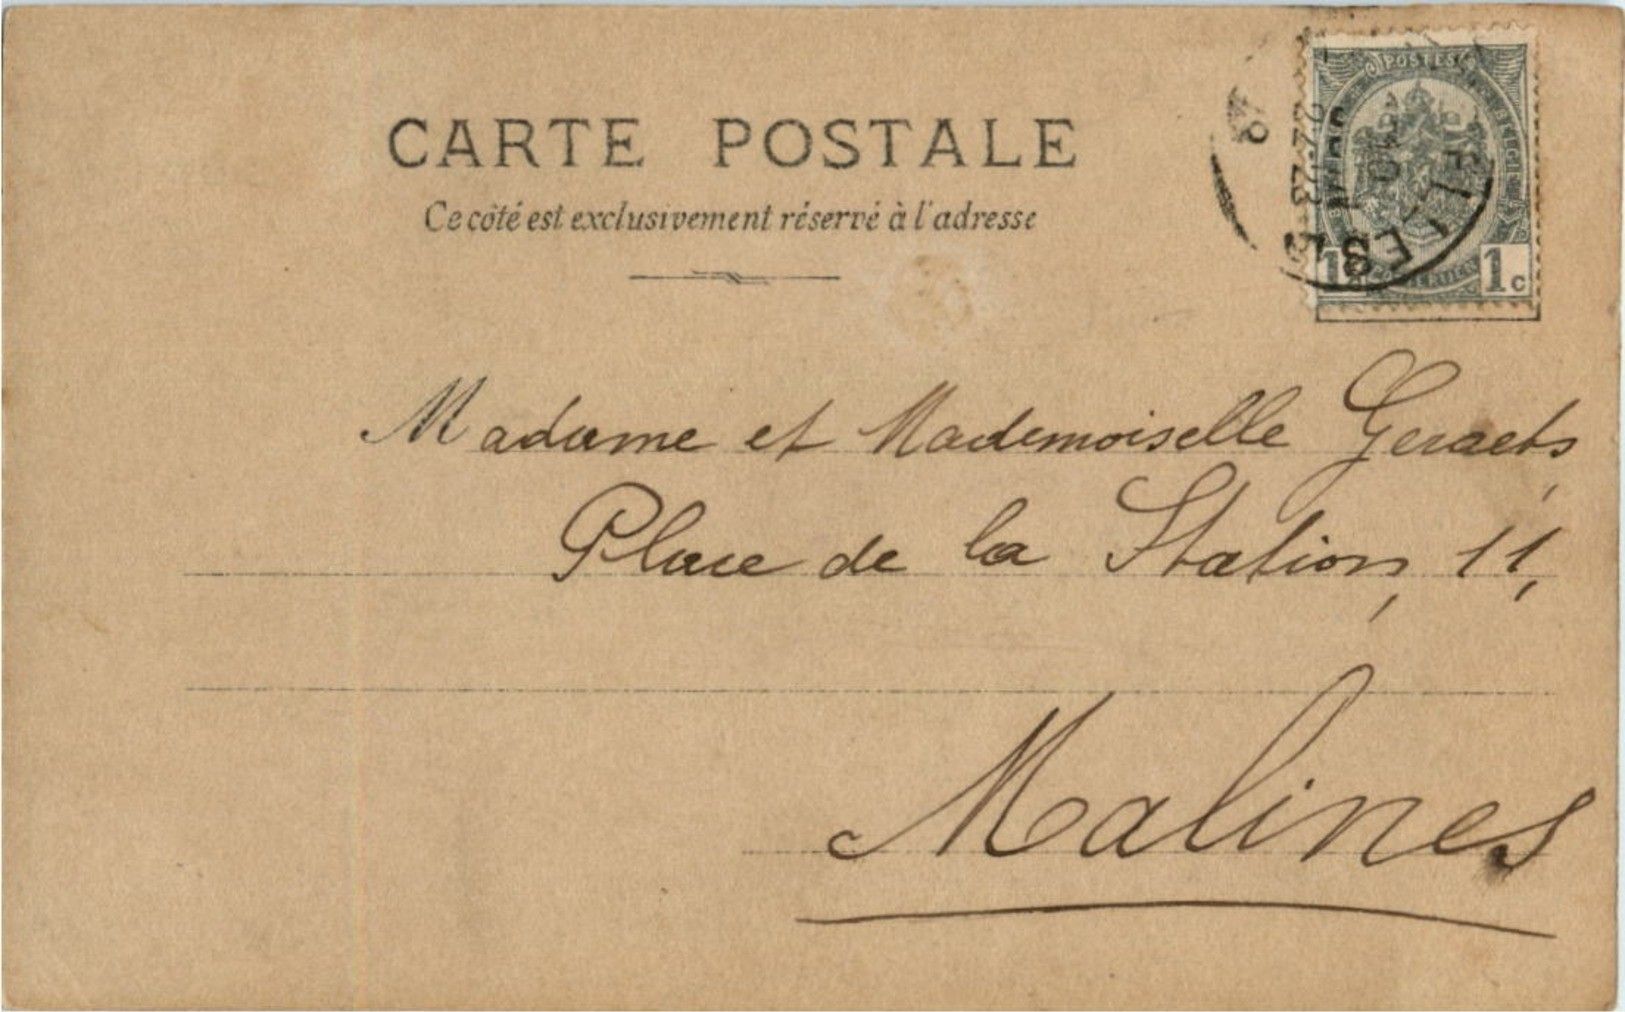 CARTE POSTALE
Ce côté est exclusivement réservé à l'adresse
POSTES
1c
22-23
Madame et Mademoiselle Geraets,
Place de la Station, 11,
Malines